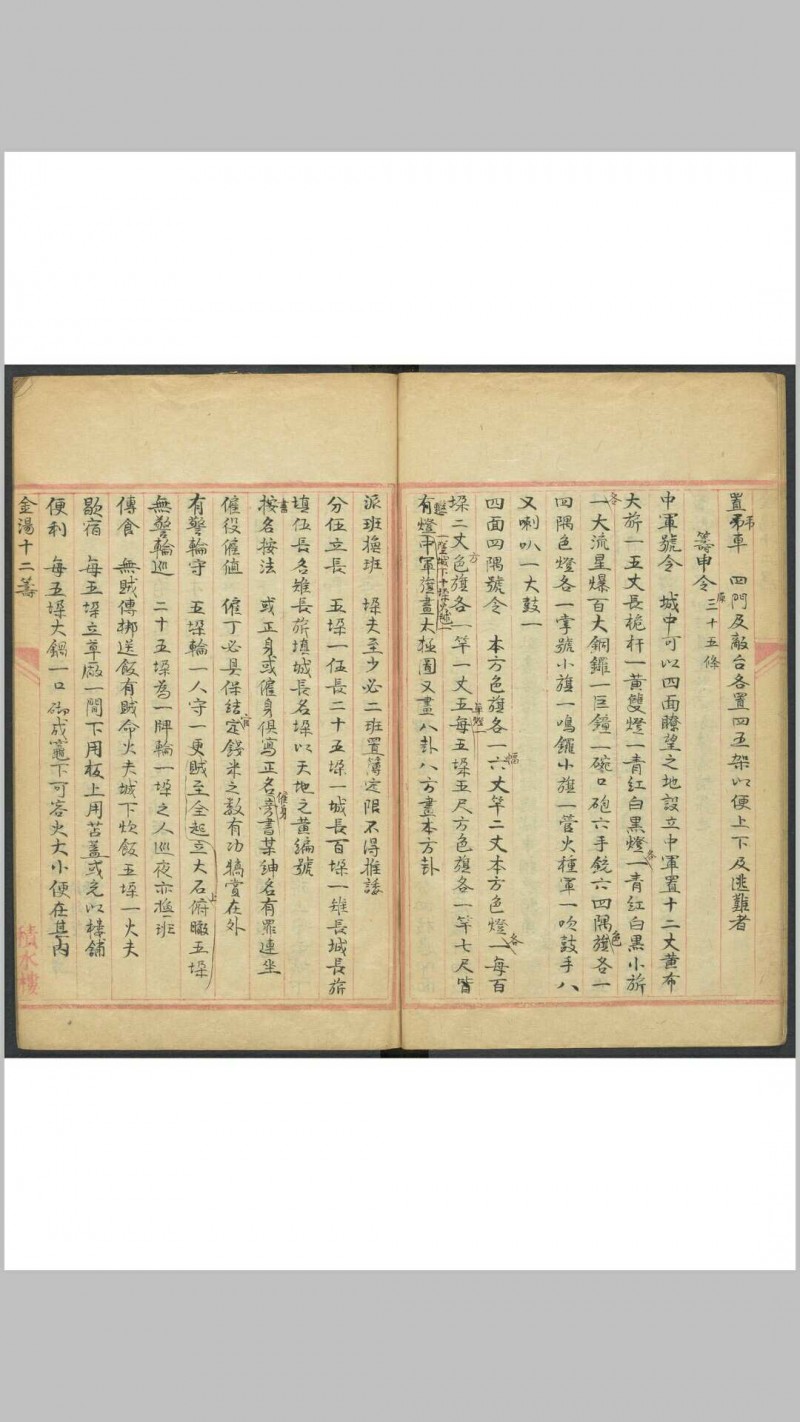 置吊車　四門及敵台各置四五架以便上下及逃難者
籌申令　三十五條
中軍號令　城中可以四面瞭望之地設立中軍置十二丈黃布
大旂一五丈長桅杆一黃雙燈一青紅白黑燈各一青紅白黑小旂
各一大流星爆百大銅鑼一巨鐘一碗口砲六手銃六四隅色旗各一
四隅色燈各一掌號小旗一鳴鑼小旗一管火種軍一吹鼓手八
又喇叭一大鼓一
四面四隅號令　本方色旗各一六丈竿二丈本方色燈各一每百
垜二丈方色旗各一竿一丈五每五垜五尺方色旗各一竿七尺皆
有燈中軍旗畫太極圖又畫八卦八方畫本方卦
派班換班　垜夫至少必二班置簿定限不得推諉
分伍立長　五垜一伍長二十五垜一城長百垜一雉長城長旂
填伍長名雉長旂填城長名垜以天地之黃編號
書按名按法　或正身或僱身俱寫正名旁書某紳名有罪連坐
僱役僱值　僱丁必具保結定錢米之數有功犒賞在外
有警輪守　五垜輪一人守一更賊至全起立大石上俯瞰五垜
無警輪巡　二十五垜為一牌輪一垜之人巡夜亦換班
傳食　無賊傳梆送飯有賊命火夫城下炊飯五垜一火夫
歇宿　每五垜立草廠一間下用板上用苫蓋或先以棲鋪
便利　每五垜大鍋一口砌成竈下可容火大小便在其內
金湯十二籌
積水樓